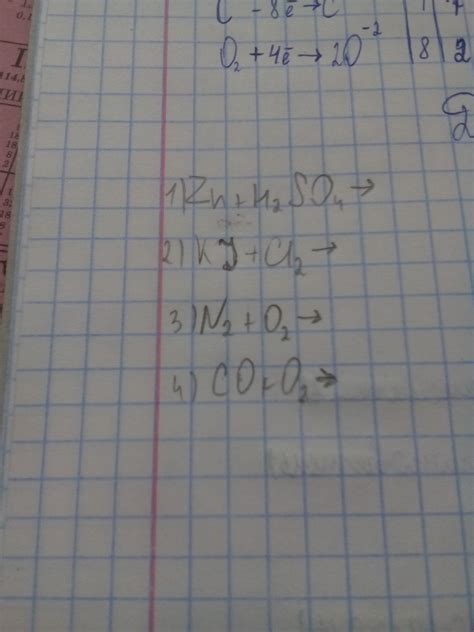 C⁻ - 8ē → C | 1 |
O₂ + 4ē → 2O⁻² | 8 | 2
2
1) Zn + H₂SO₄ →
2) KJ + Cl₂ →
3) N₂ + O₂ →
4) CO + O₂ →